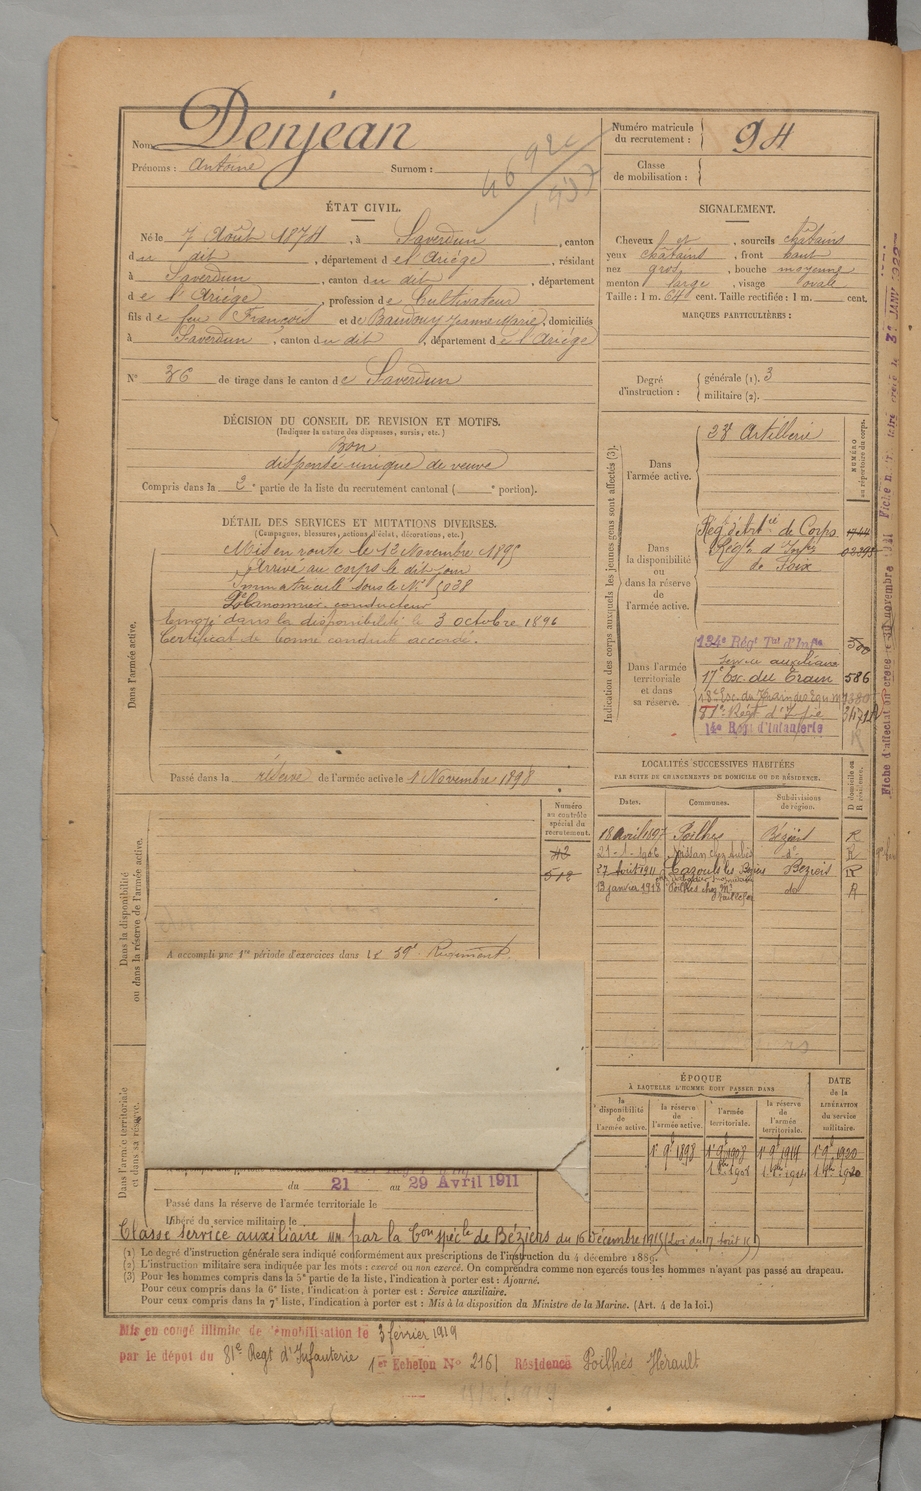 Nom Denjean
Prénoms : Antoine Surnom :
Numéro matricule du recrutement : 94
Classe de mobilisation :
ÉTAT CIVIL.
Né le 7 Août 1874, à Saverdun, canton
du dit, département de l'Ariège, résidant
à Saverdun, canton du dit, département
de l'Ariège, profession de Cultivateur
fils de feu François et de Baudouy Jeanne Marie, domiciliés
à Saverdun, canton du dit, département de l'Ariège
N° 36 de tirage dans le canton de Saverdun
SIGNALEMENT.
Cheveux et, sourcils châtains
yeux châtains, front haut
nez gros, bouche moyenne
menton large, visage ovale
Taille : 1 m. 64 cent. Taille rectifiée : 1 m. cent.
MARQUES PARTICULIÈRES :
Degré d'instruction : générale (1). 3
militaire (2).
DÉCISION DU CONSEIL DE REVISION ET MOTIFS.
(Indiquer la nature des dispenses, sursis, etc.)
Bon
dispensé unique de veuve
Compris dans la 2e partie de la liste du recrutement cantonal ( e portion).
DÉTAIL DES SERVICES ET MUTATIONS DIVERSES.
(Campagnes, blessures, actions d'éclat, décorations, etc.)
Dans l'armée active.
Mis en route le 13 Novembre 1895
Arrivé au corps le dit jour
Immatriculé sous le N° 5038
2e Canonnier conducteur
Envoyé dans la disponibilité le 3 octobre 1896
Certificat de bonne conduite accordé.
Passé dans la réserve de l'armée active le 1 Novembre 1898
Indication des corps auxquels les jeunes gens sont affectés (3).
NUMÉRO au répertoire du corps.
Dans l'armée active.
23e Artillerie
Dans la disponibilité ou dans la réserve de l'armée active.
Rég d'Artie de Corps
Régt d'Infie
de Foix
Dans l'armée territoriale et dans sa réserve.
134e Régt Tal d'Infie
service auxiliaire
17e Esc. du Train 586
81e Régt d'Infie
14e Régt d'Infanterie
LOCALITÉS SUCCESSIVES HABITÉES
PAR SUITE DE CHANGEMENTS DE DOMICILE OU DE RÉSIDENCE.
Dates. Communes. Subdivisions de région. D domicile ou R résidence.
18 avril 1897 Poilhes Béziers R
21-1-1906 Nissan do R
27 Août 1911 Cazouls les Béziers Béziers R
13 janvier 1918 Poilhes chez Mr do R
Dans la disponibilité ou dans la réserve de l'armée active.
Numéro au contrôle spécial du recrutement.
42
512
A accompli une 1re période d'exercices dans le 39e Régiment
Dans l'armée territoriale et dans sa réserve.
du 21 au 29 Avril 1911
Passé dans la réserve de l'armée territoriale le
Libéré du service militaire le
ÉPOQUE
À LAQUELLE L'HOMME DOIT PASSER DANS
la disponibilité de l'armée active. la réserve de l'armée active. l'armée territoriale. la réserve de l'armée territoriale.
DATE de la LIBÉRATION du service militaire.
1er 9bre 1898 1er 9bre 1908 1er 9bre 1914 1er 9bre 1920
Classé service auxiliaire par la Con spéle de Béziers du 16 Décembre 1915 (Loi du 17 Août 15)
(1) Le degré d'instruction générale sera indiqué conformément aux prescriptions de l'instruction du 4 décembre 1889.
(2) L'instruction militaire sera indiquée par les mots : exercé ou non exercé. On comprendra comme non exercés tous les hommes n'ayant pas passé au drapeau.
(3) Pour les hommes compris dans la 5e partie de la liste, l'indication à porter est : Ajourné.
Pour ceux compris dans la 6e liste, l'indication à porter est : Service auxiliaire.
Pour ceux compris dans la 7e liste, l'indication à porter est : Mis à la disposition du Ministre de la Marine. (Art. 4 de la loi.)
Mis en congé illimité de démobilisation le 3 février 1919
par le dépôt du 81e Regt d'Infanterie 1er Echelon N° 2161 Résidence Poilhés Hérault